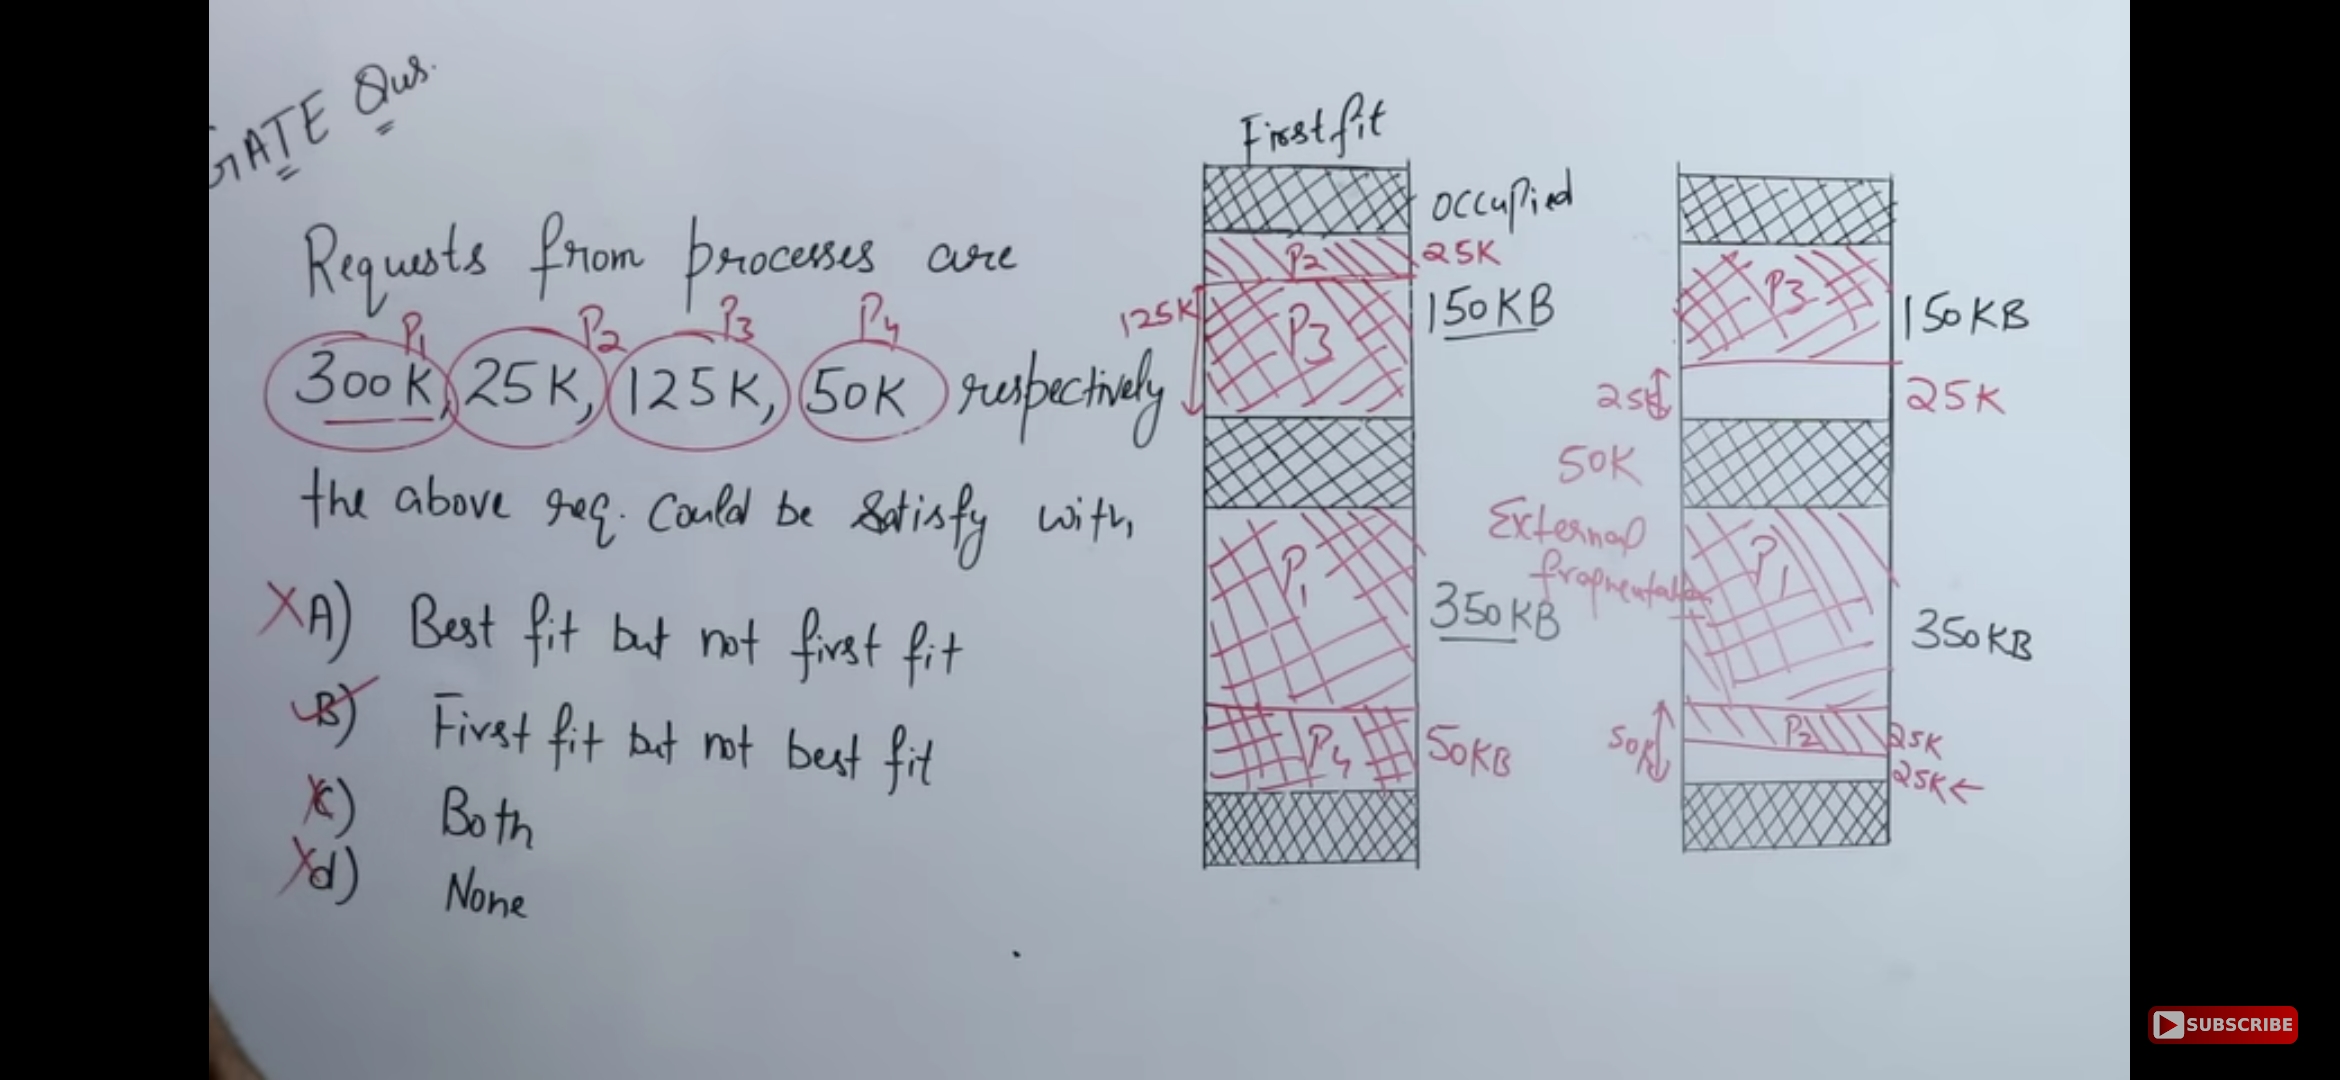 GATE Qus.
Requests from processes are
P1 P2 P3 P4
300K, 25K, 125K, 50K respectively
the above req. Could be Satisfy with,
A) Best fit but not first fit
B) First fit but not best fit
C) Both
d) None
First fit
occupied
P2 25K
125K P3 150KB
P1 350KB
P4 50KB
P3 150KB
25K 25K
50K
External
fragmentation
P1 350KB
50K P2 25K
25K
SUBSCRIBE